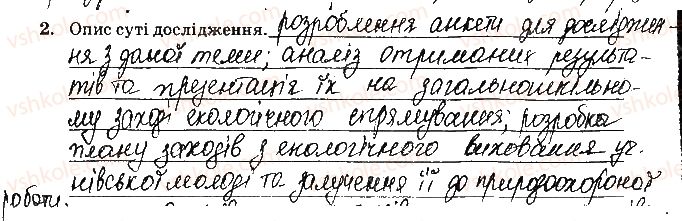 2. Опис суті дослідження. розроблення анкети для досліджен-
ня з даної теми; аналіз отриманих результа-
тів та презентація їх на загальношкільно-
му заході екологічного спрямування; розробка
плану заходів з екологічного виховання уч-
нівської молоді та залучення її до природоохороної
роботи.